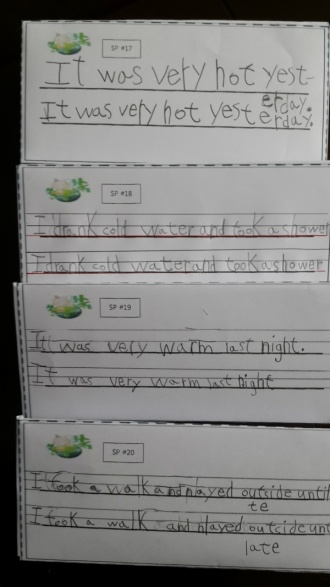 SP #17
It was very hot yest-
erday.
It was very hot yest erday.
SP #18
I drank cold water and took a shower
I drank cold water and took a shower
SP #19
It was very warm last night.
It was very warm last night
SP #20
I took a walk and played outside until
te
I took a walk and played outside unt
late